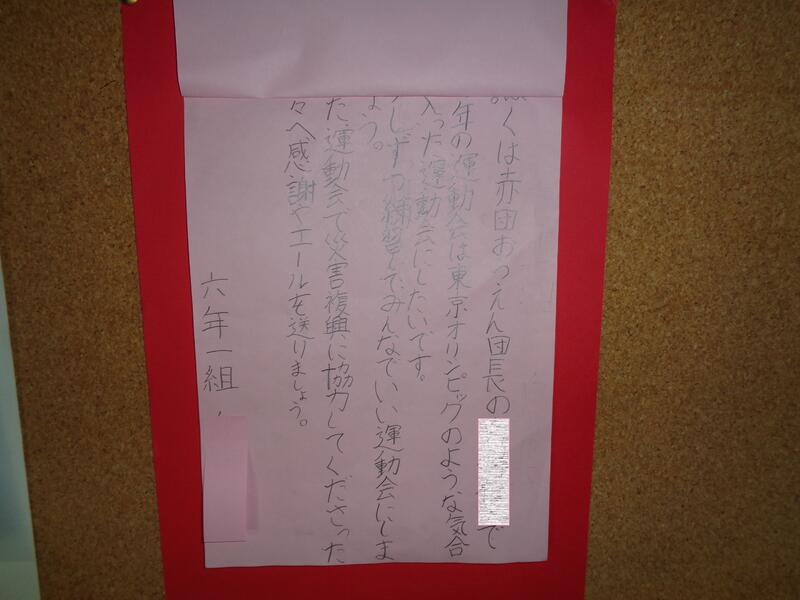 くは赤団おうえん団長の で
年の運動会は東京オリンピックのような気合
入った運動会にしたいです。
しずつ練習して、みんなでいい運動会にしま
ょう。
た、運動会で災害復興に協力してくださった
々へ感謝やエールを送りましょう。
六年一組